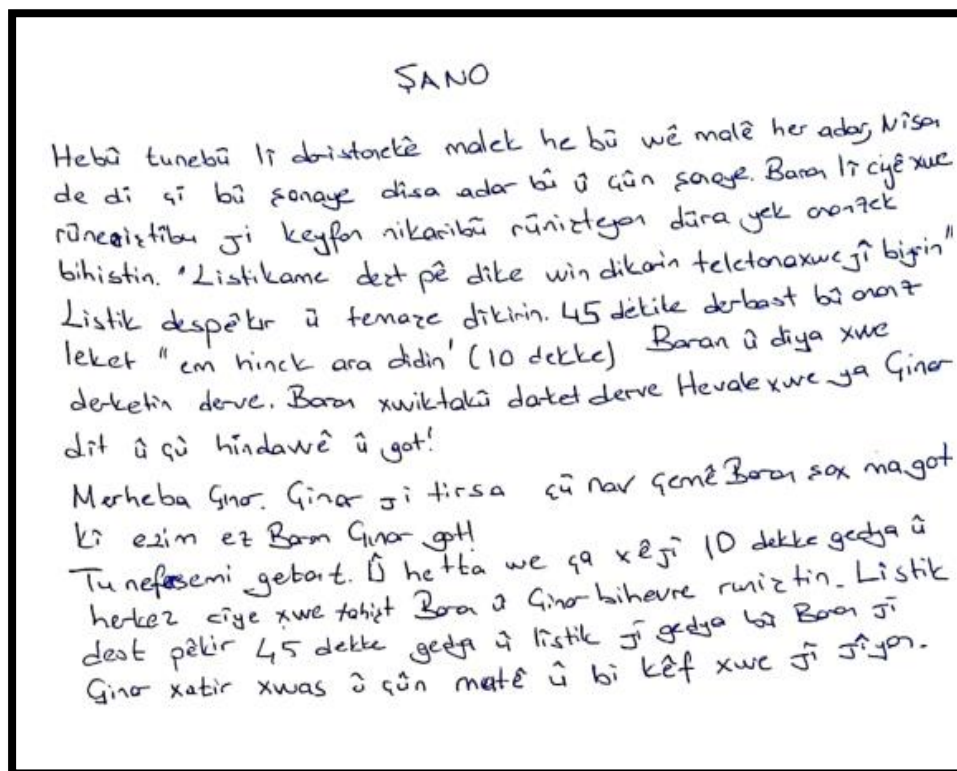 ŞANO
Hebû tunebû li daristanekê malek he bû wê malê her adar, Nîsan
de di çi bû şanaye dîsa adar bû û çûn şanaye. Baran li ciyê xwe
rûneniştibu ji keyfan nikaribû rûnizteyan dûra yek anonzek
bihistin. "Listikame dezt pê dike win dikarin telefonaxwe jî bigrin"
Listik despêkir û temaze dikirin. 45 dekike derbast bû anonz
leket "em hinek ara didin" (10 dekke) Baran û diya xwe
derketin derve. Baran xwiktakû darket derve Hevale xwe ya Çinar
dît û çû hindawê û got!
Merheba Çınar. Çinar ji tirsa çû nav çemê Baran sax ma, got
kî ezim ez Baran Çınar got!
Tu nefesemi qetart. Û hetta we ça xê jî 10 dekke gedya û
herkez ciye xwe tahişt Baran û Çinar bihevre runiztin. Listik
dest pêkir 45 dekke gedya û lîstik jî gedya bû Baran jî
Çinar xatir xwas û çûn malê û bi kêf xwe jî jîyan.